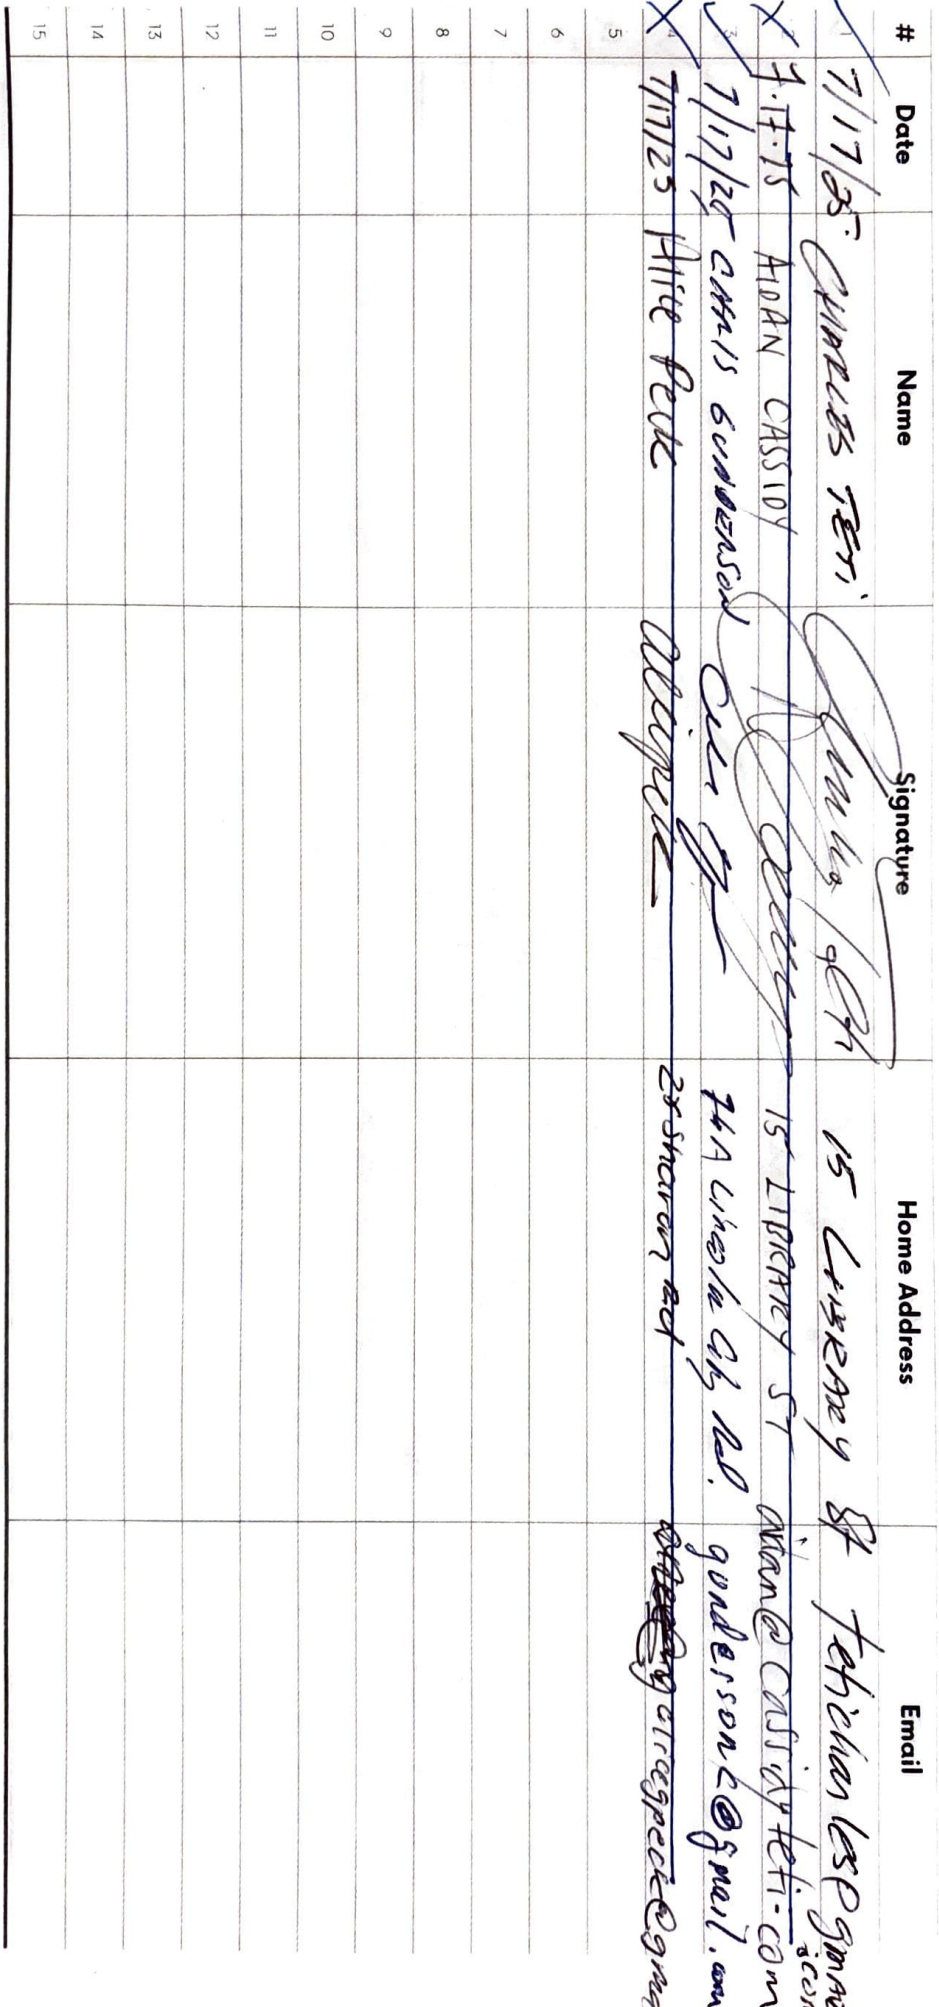 # Date Name Signature Home Address Email
1 7/17/25 CHARLES TETI 15 LIBRARY St
2 7.17.25 AIDAN CASSIDY 15 LIBRARY ST aidan@cassidyteti.com
3 7/17/25 CHRIS GUNDERSON 74A Lincoln City Rd.
4 7/17/25 Alice Peck Sharon Rd alicegpeck@gma
5
6
7
8
9
10
11
12
13
14
15